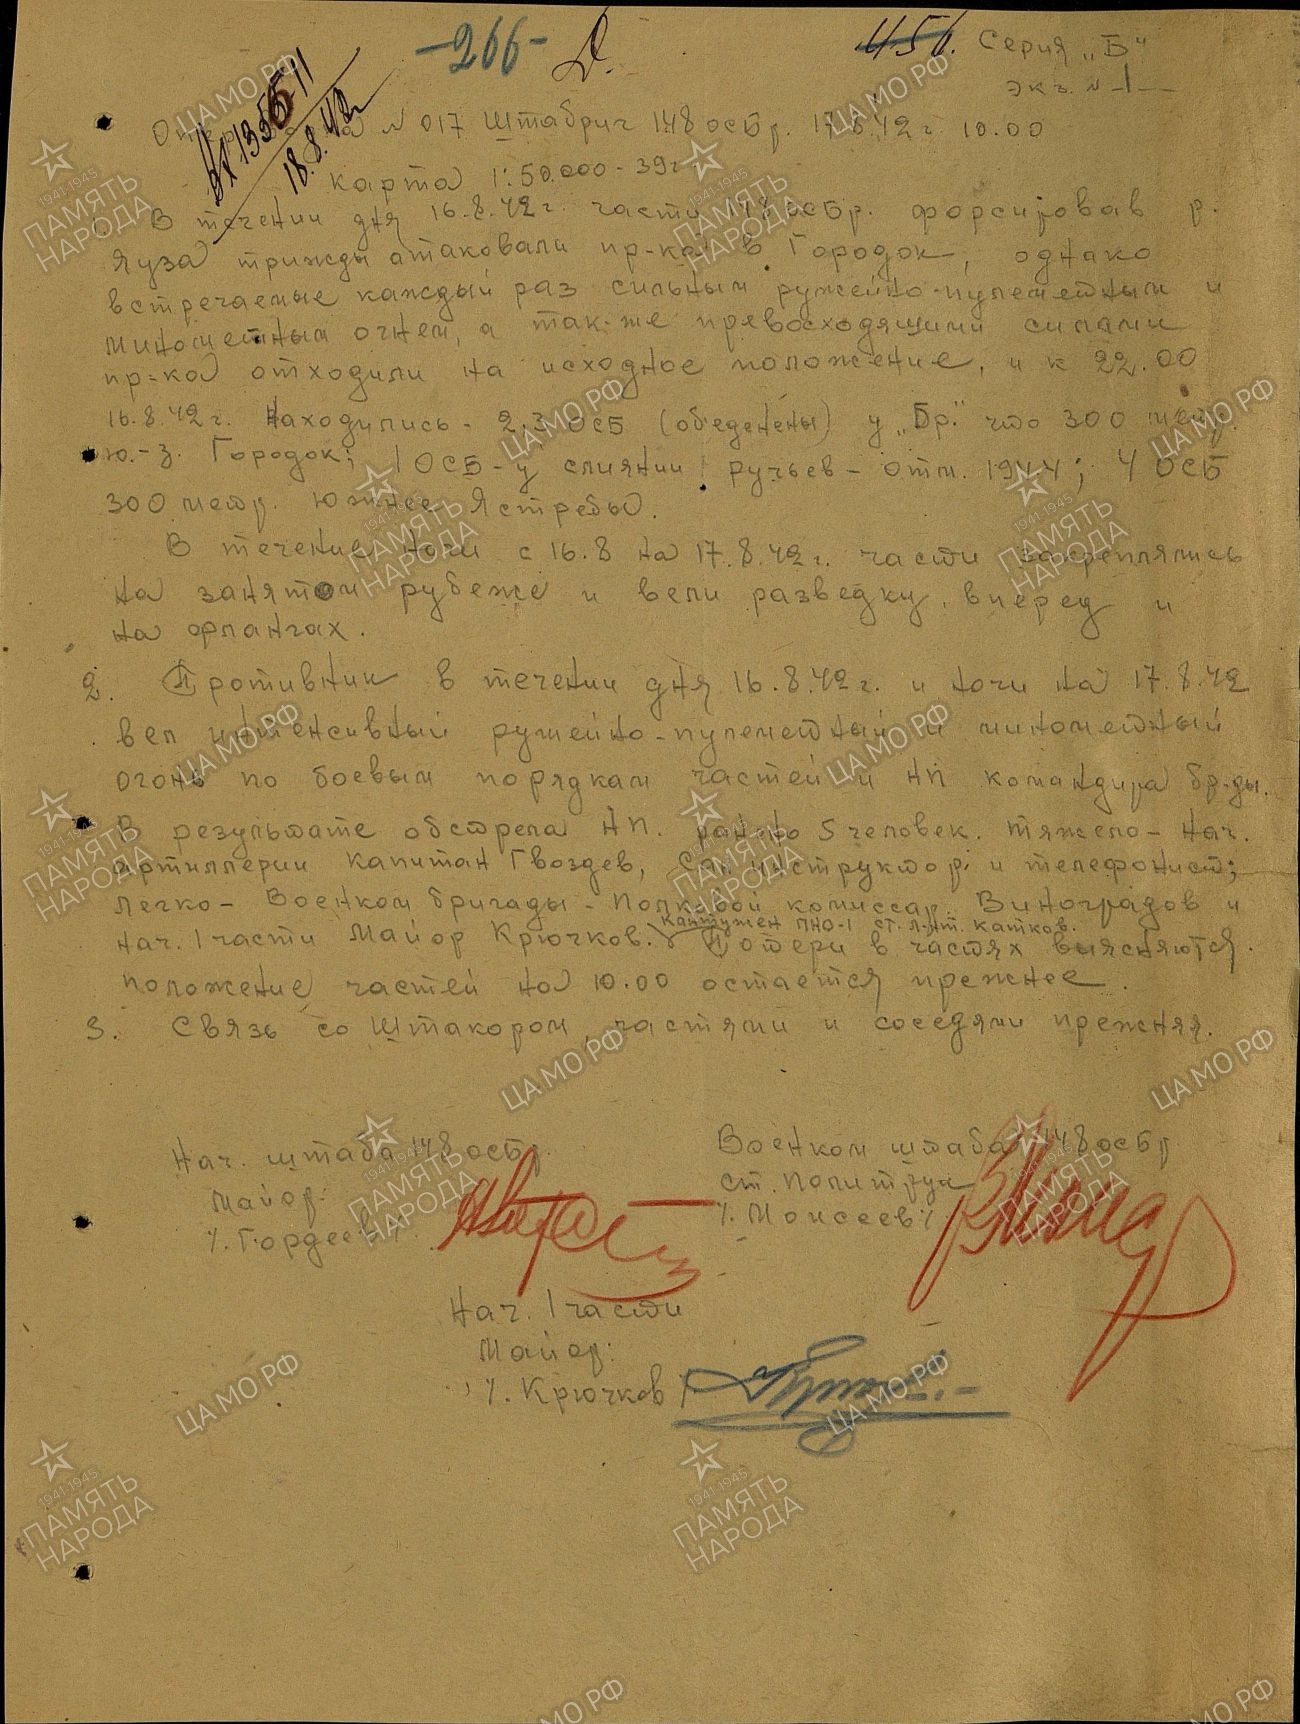 -266-
456.
Серия „Б"
экз. № 1
Вх 135511
18.8.42г
№ 017 Штабриг 148 осбр. 17.8.42г. 10.00
Карта 1:50.000-39г
1. В течении дня 16.8.42г. части 148 осбр. форсировав р.
Яуза трижды атаковали пр-ка в Городок, однако
встречаемые каждый раз сильным ружейно-пулеметным и
минометным огнем, а так-же превосходящими силами
пр-ка отходили на исходное положение, и к 22.00
16.8.42г. находились - 2.3 ОСБ (обеденены) у „Бр." что 300 метр.
ю.-з. Городок; 1 ОСБ - у слиянии ручьев - отм. 194.4; 4 ОСБ
300 метр. южнее Ястребы.
В течение ночи с 16.8 на 17.8.42г. части закреплялись
на занятом рубеже и вели разведку, вперед и
на флангах.
2. Противник в течении дня 16.8.42г. и ночи на 17.8.42
вел интенсивный ружейно-пулеметный и минометный
огонь по боевым порядкам частей и НП командира бр-ды.
В результате обстрела НП. ранено 5 человек. тяжело - Нач.
артиллерии капитан Гвоздев, сан. инструктор и телефонист;
легко - Военком бригады - Полковой комиссар Виноградов и
контужен ПНО-1 ст. л-нт. Катков.
нач. 1 части Майор Крючков. Потери в частях выясняются.
Положение частей на 10.00 остается прежнее.
3. Связь со Штакором, частями и соседями прежняя.
Нач. штаба 148 осбр.
Майор:
/. Гордеев /
Военком штаба 148 осбр
ст. политрук
/. Моисеев /
Нач. 1 части
Майор:
/. Крючков /